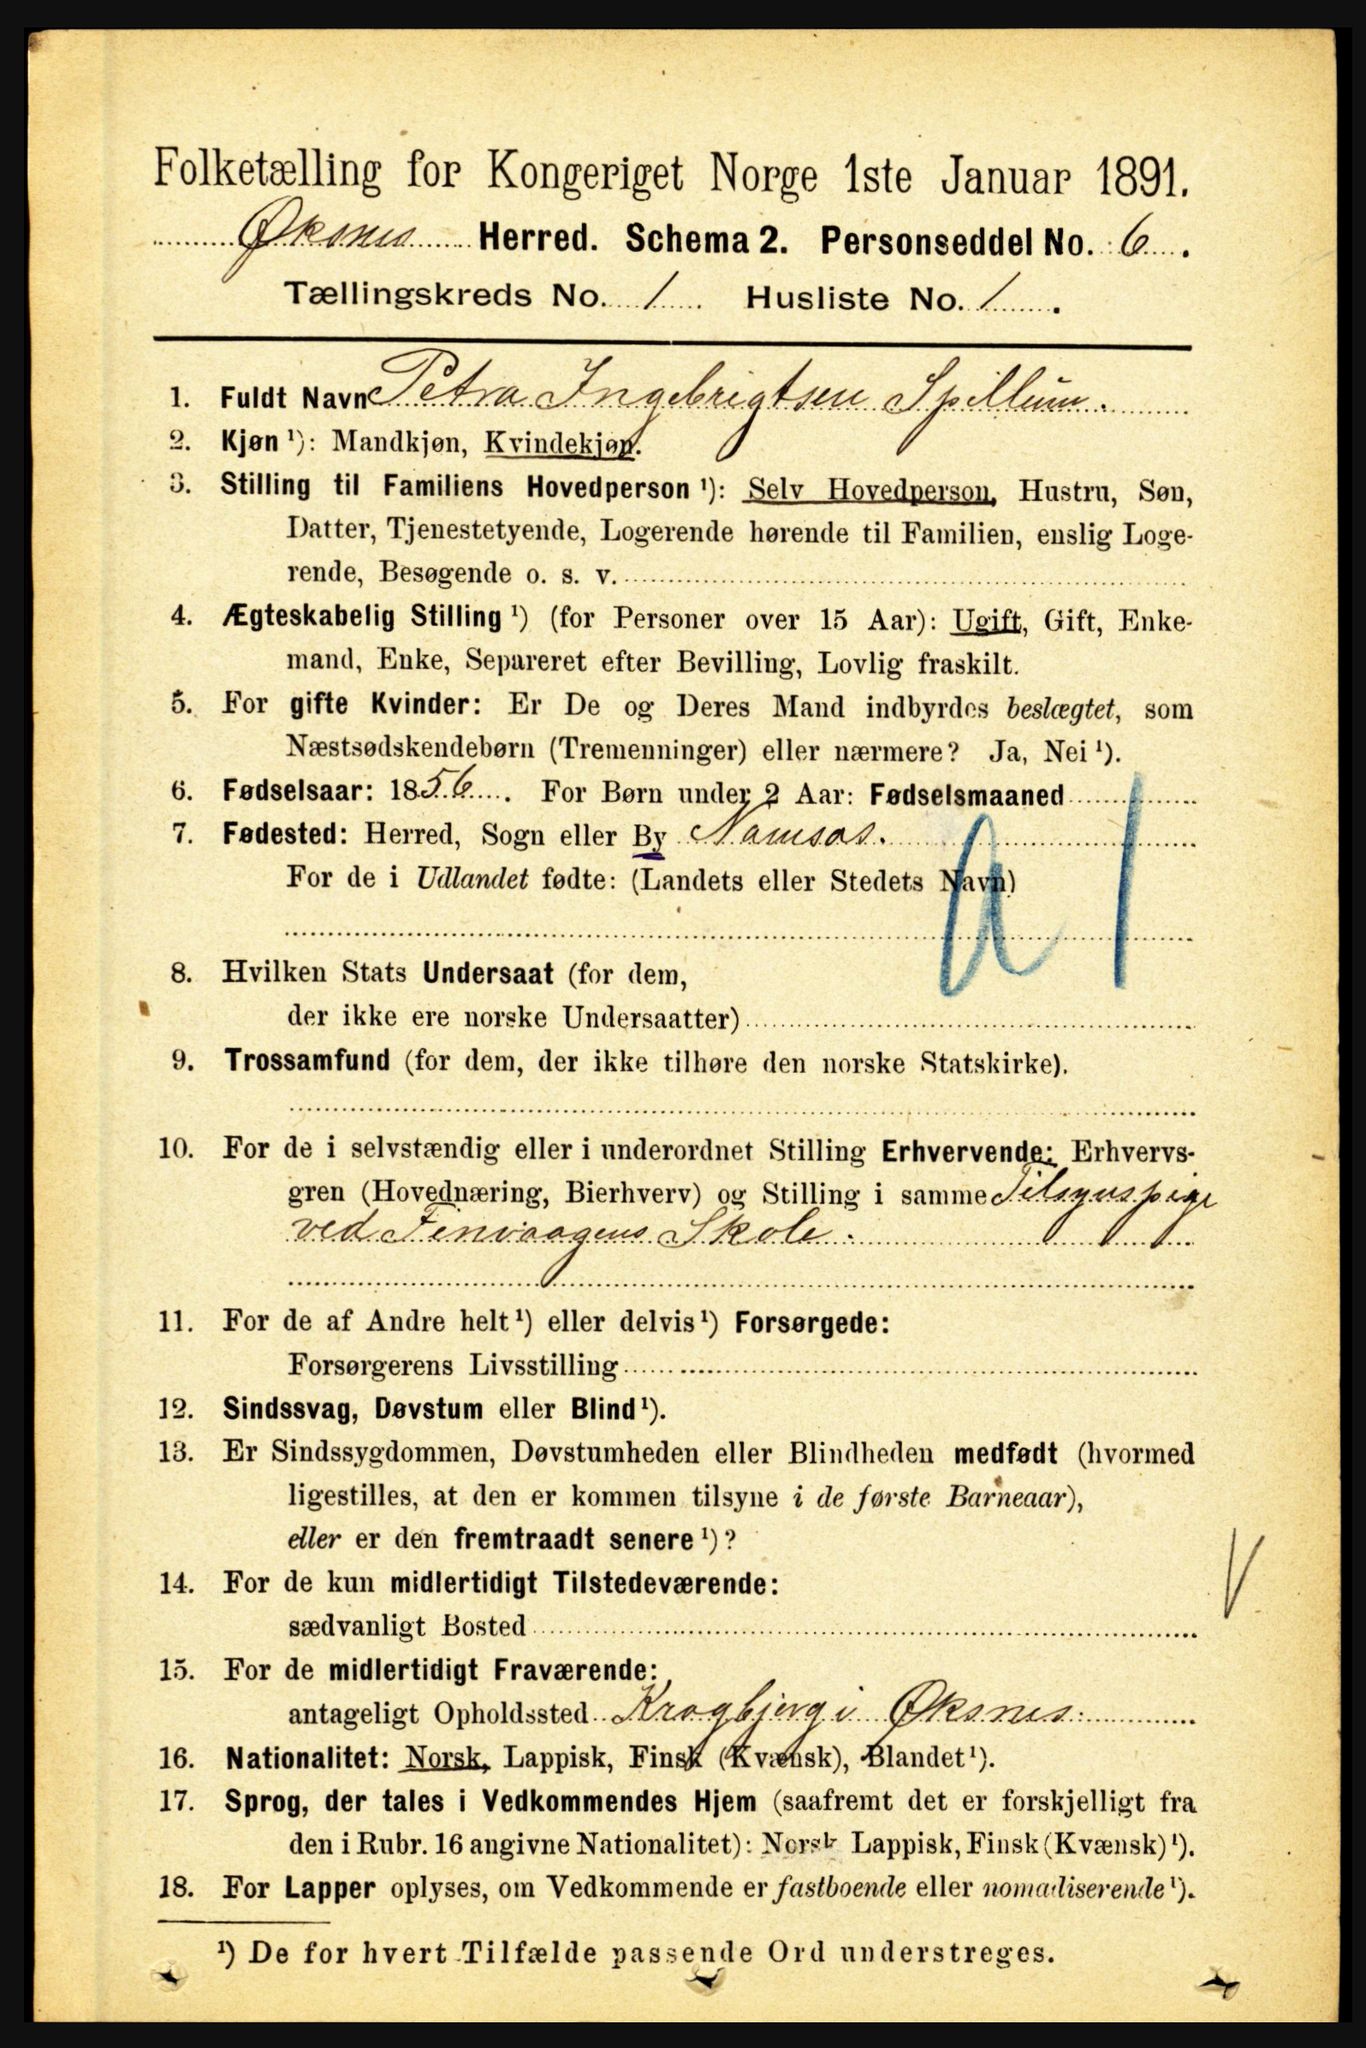 Folketælling for Kongeriget Norge 1ste Januar 1891.
Øksnes Herred. Schema 2. Personseddel No. 6.
Tællingskreds No. 1 Husliste No. 1.
1. Fuldt Navn Petra Ingebrigtsen Spillum.
2. Kjøn ¹): Mandkjøn, Kvindekjøn.
3. Stilling til Familiens Hovedperson ¹): Selv Hovedperson, Hustru, Søn,
Datter, Tjenestetyende, Logerende hørende til Familien, enslig Loge-
rende, Besøgende o. s. v.
4. Ægteskabelig Stilling ¹) (for Personer over 15 Aar): Ugift, Gift, Enke-
mand, Enke, Separeret efter Bevilling, Lovlig fraskilt.
5. For gifte Kvinder: Er De og Deres Mand indbyrdes beslægtet, som
Næstsødskendebørn (Tremenninger) eller nærmere? Ja, Nei ¹).
6. Fødselsaar: 1856. For Børn under 2 Aar: Fødselsmaaned
7. Fødested: Herred, Sogn eller By Namsos.
For de i Udlandet fødte: (Landets eller Stedets Navn)
8. Hvilken Stats Undersaat (for dem,
der ikke ere norske Undersaatter)
9. Trossamfund (for dem, der ikke tilhøre den norske Statskirke).
10. For de i selvstændig eller i underordnet Stilling Erhvervende: Erhvervs-
gren (Hovednæring, Bierhverv) og Stilling i samme Tilsynspige
ved Finvaagens Skole.
11. For de af Andre helt ¹) eller delvis ¹) Forsørgede:
Forsørgerens Livsstilling
12. Sindssvag, Døvstum eller Blind ¹).
13. Er Sindssygdommen, Døvstumheden eller Blindheden medfødt (hvormed
ligestilles, at den er kommen tilsyne i de første Barneaar),
eller er den fremtraadt senere ¹)?
14. For de kun midlertidigt Tilstedeværende:
sædvanligt Bosted
15. For de midlertidigt Fraværende:
antageligt Opholdssted Kragbjerg i Øksnes.
16. Nationalitet: Norsk, Lappisk, Finsk (Kvænsk), Blandet ¹).
17. Sprog, der tales i Vedkommendes Hjem (saafremt det er forskjelligt fra
den i Rubr. 16 angivne Nationalitet): Norsk Lappisk, Finsk (Kvænsk) ¹).
18. For Lapper oplyses, om Vedkommende er fastboende eller nomadiserende ¹).
¹) De for hvert Tilfælde passende Ord understreges.